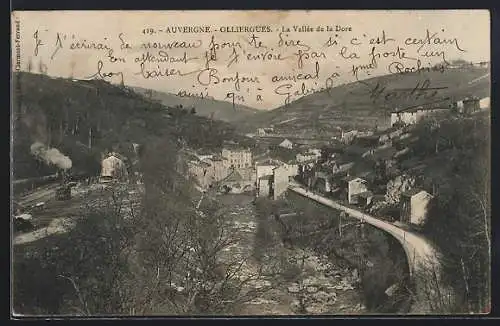 419. - AUVERGNE. - OLLIERGUES. - La Vallée de la Dore
Je t'écrirai de nouveau pour te dire si c'est certain
en attendant je t'envoie par la poste un
bon baiser
Bonjour amical à Mme
ainsi qu'à Gabriel Marthe